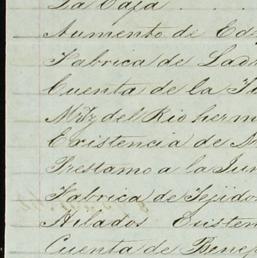 La Caja . . . .
Aumento de Ed
Fabrica de Ladr
Cuenta de la
Mrtz del Rio herm
Existencia de M
Prestamo a la Jun
Fabrica de Tejido
Hilados Existen
Cuenta de Benef